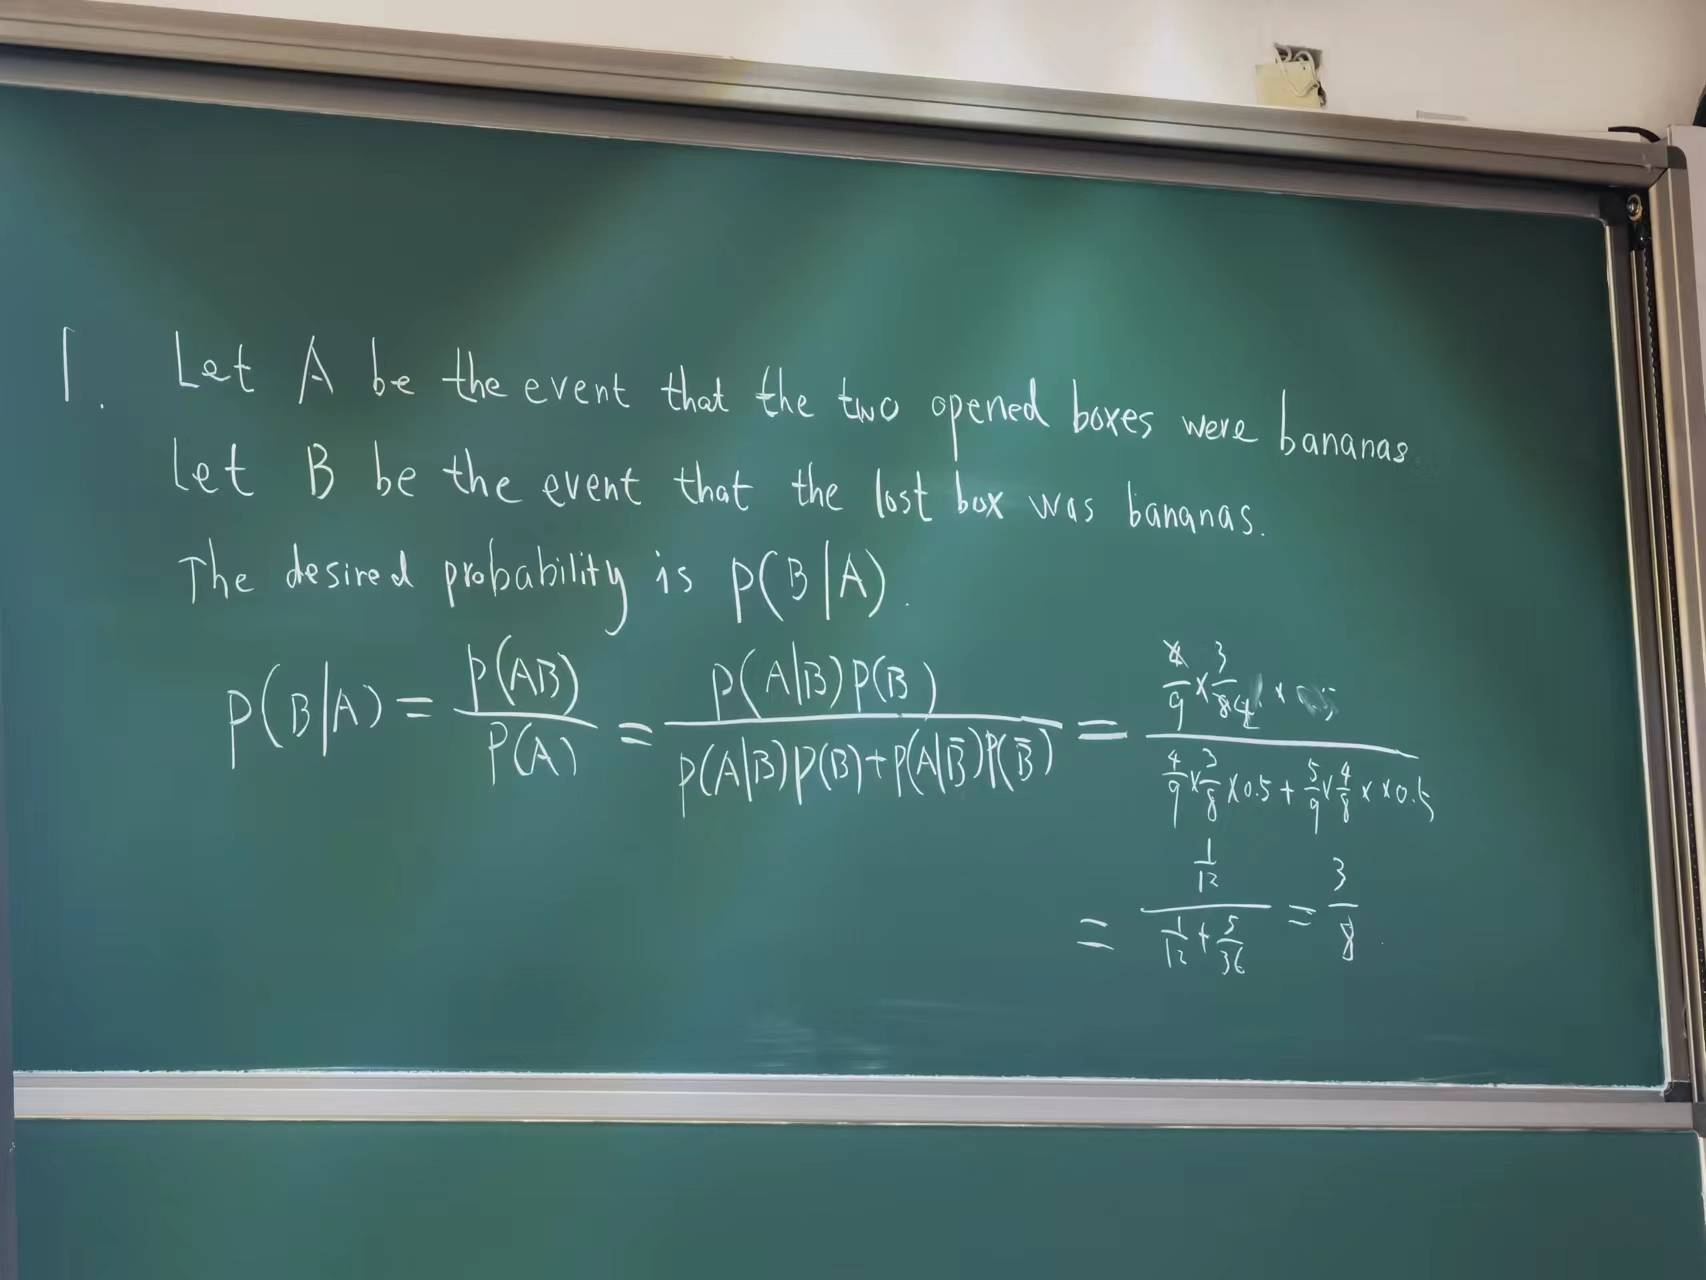 1. Let A be the event that the two opened boxes were bananas.
Let B be the event that the lost box was bananas.
The desired probability is P(B|A).
P(B|A) = P(AB)/P(A) = P(A|B)P(B)/(P(A|B)P(B)+P(A|B̄)P(B̄)) = (4/9 × 3/8 ×)/(4/9 × 3/8 × 0.5 + 5/9 × 4/8 × × 0.5)
= (1/12)/(1/12 + 5/36) = 3/8.